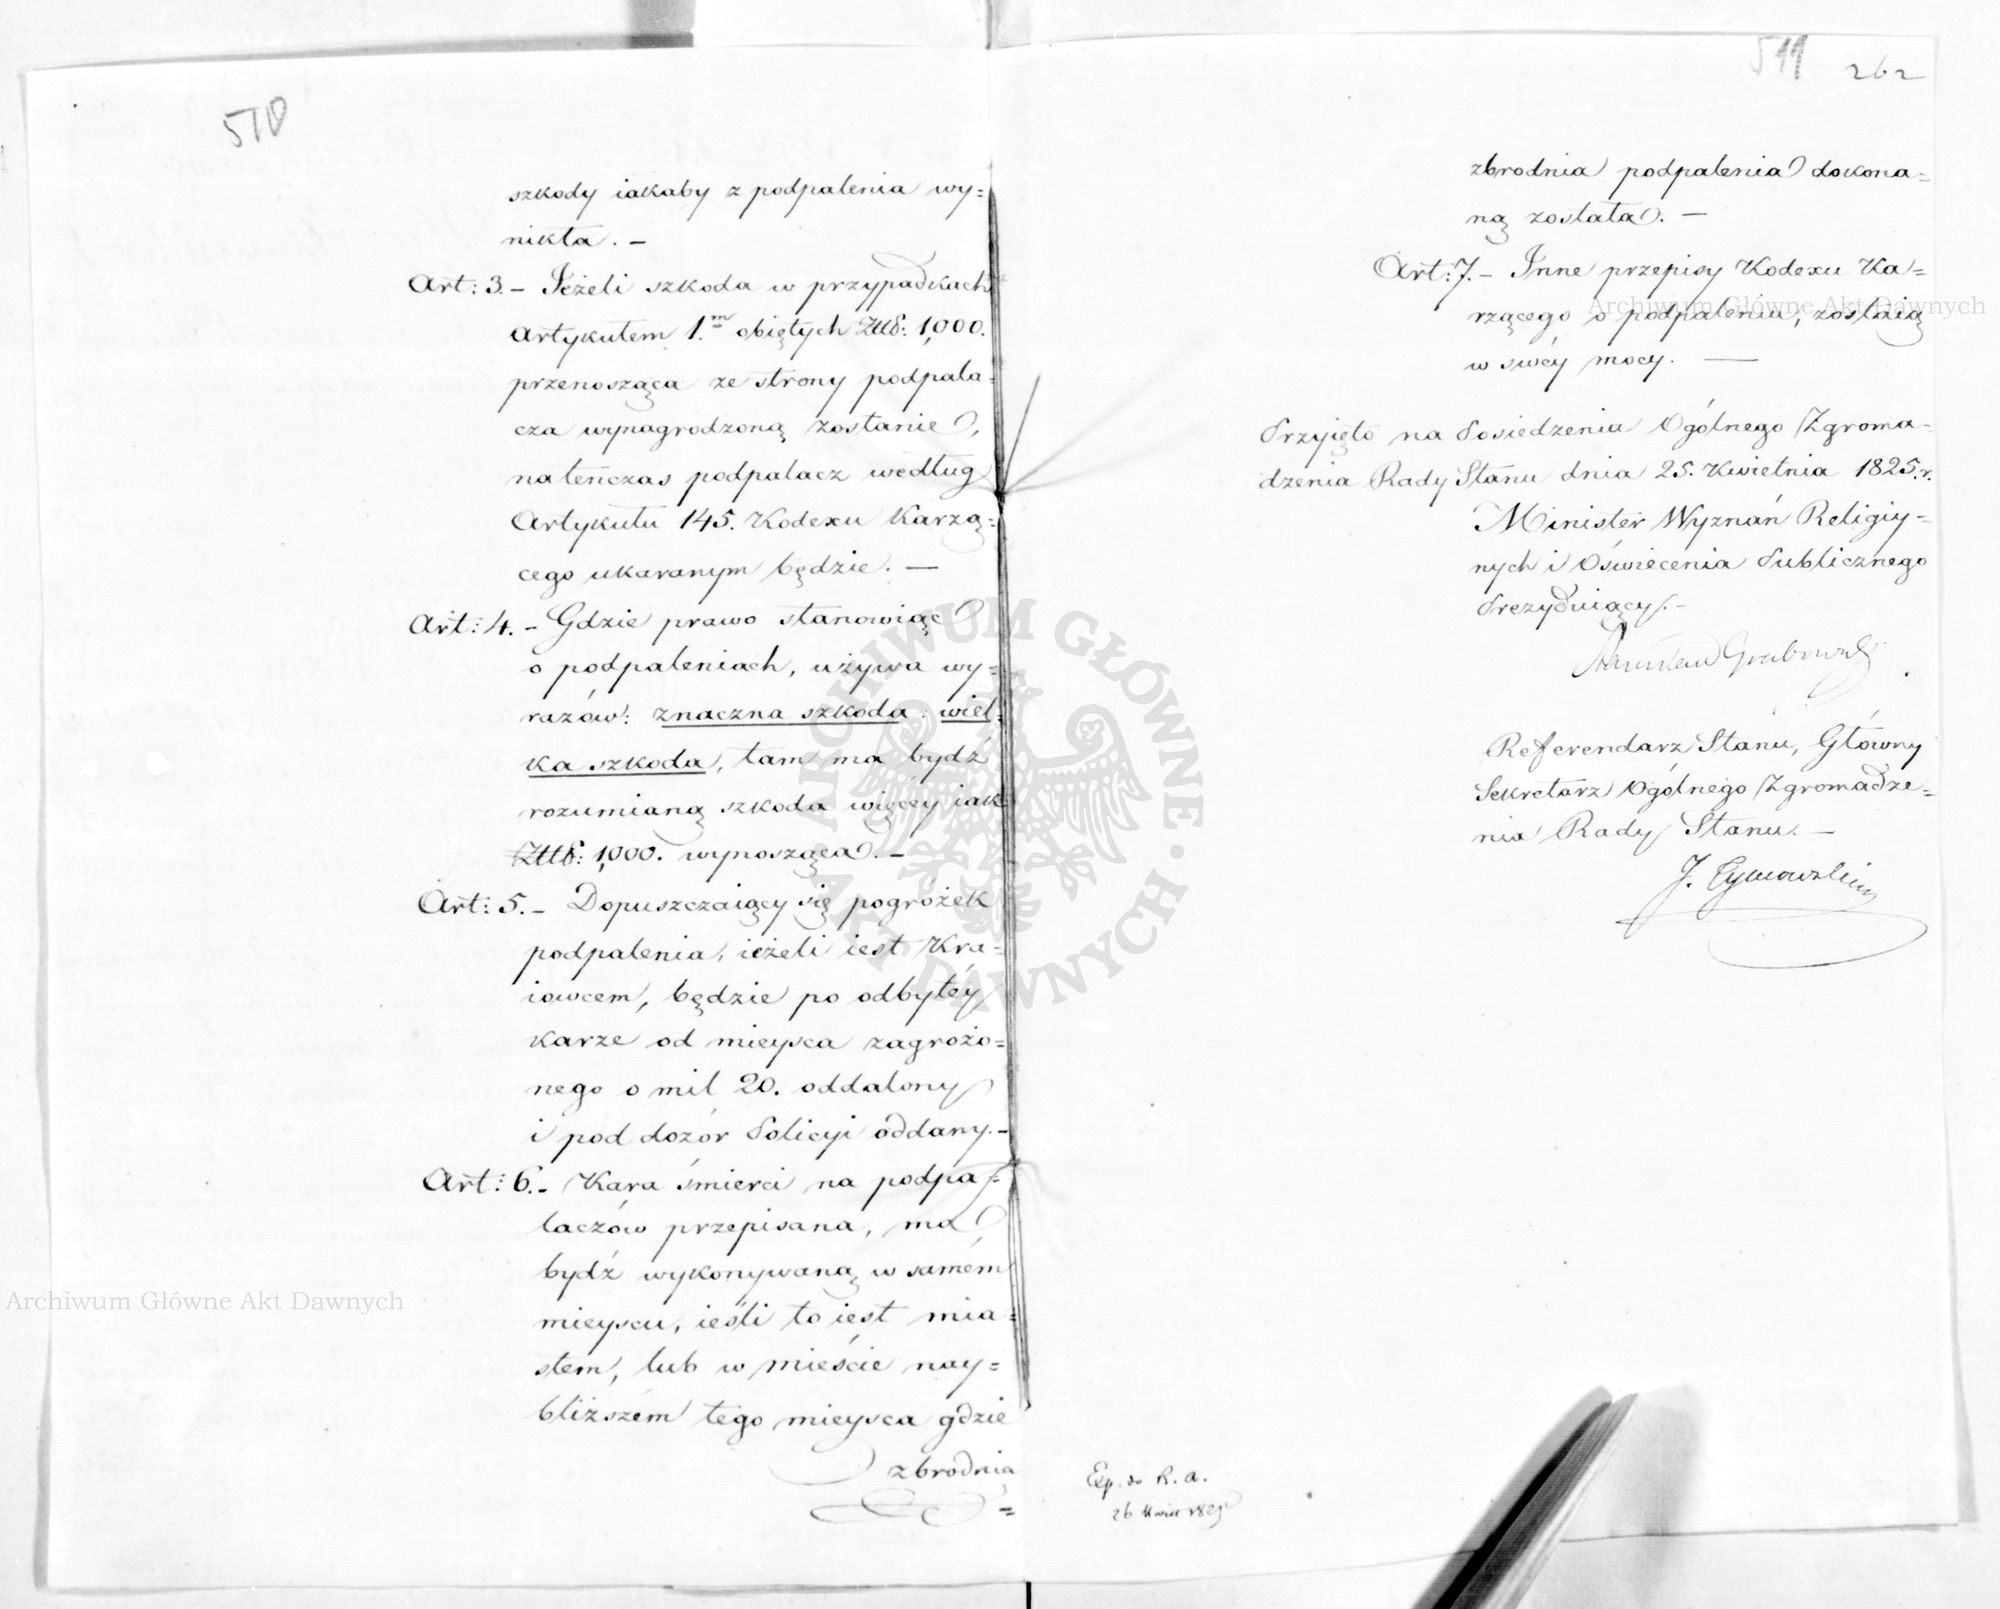 510
szkody iakaby z podpalenia wy=
nikła. —
Art: 3. — Jeżeli szkoda w przypadkach
Artykułem 1.m obiętych Złł: 1,000.
przenosząca ze strony podpala=
cza wynagrodzoną zostanie,
natenczas podpalacz według
Artykułu 145. Kodexu Karzą=
cego ukaranym będzie. —
Art: 4. — Gdzie prawo stanowiąc
o podpaleniach, używa wy=
razów: znaczna szkoda: wiel=
ka szkoda, tam ma bydź
rozumianą szkoda więcéy iak
Złł: 1,000. wynosząca. —
Art: 5. — Dopuszczaiący się pogróżek
podpalenia, ieżeli iest Kra=
iowcem, będzie po odbytéy
karze od mieysca zagrożo=
nego o mil 20. oddalony
i pod dozór Policyi oddany. —
Art: 6. — Kara śmierci na podpa=
laczów przepisana, ma
bydź wykonywaną w samém
mieyscu, ieśli to iest mia=
stem, lub w mieście nay=
bliższém tego mieysca gdzie
zbrodnia
=
511 262
zbrodnia podpalenia dokona=
ną została. —
Art: 7. — Inne przepisy Kodexu Ka=
rzącego o podpaleniu, zostaią
w swéy mocy. —
Przyięto na Posiedzeniu Ogólnego Zgroma=
dzenia Rady Stanu dnia 25. Kwietnia 1825. r.
Minister Wyznań Religiy=
nych i Oświecenia Publicznego
Prezyduiący. —
Stanisław Grabowski
Referendarz Stanu, Główny
Sekretarz Ogólnego Zgromadze=
nia Rady Stanu. —
J. Tymowski
Exp. do R. A.
26 Kwiet 1825
Archiwum Główne Akt Dawnych
Archiwum Główne Akt Dawnych
ARCHIWUM GŁÓWNE · AKT DAWNYCH ·